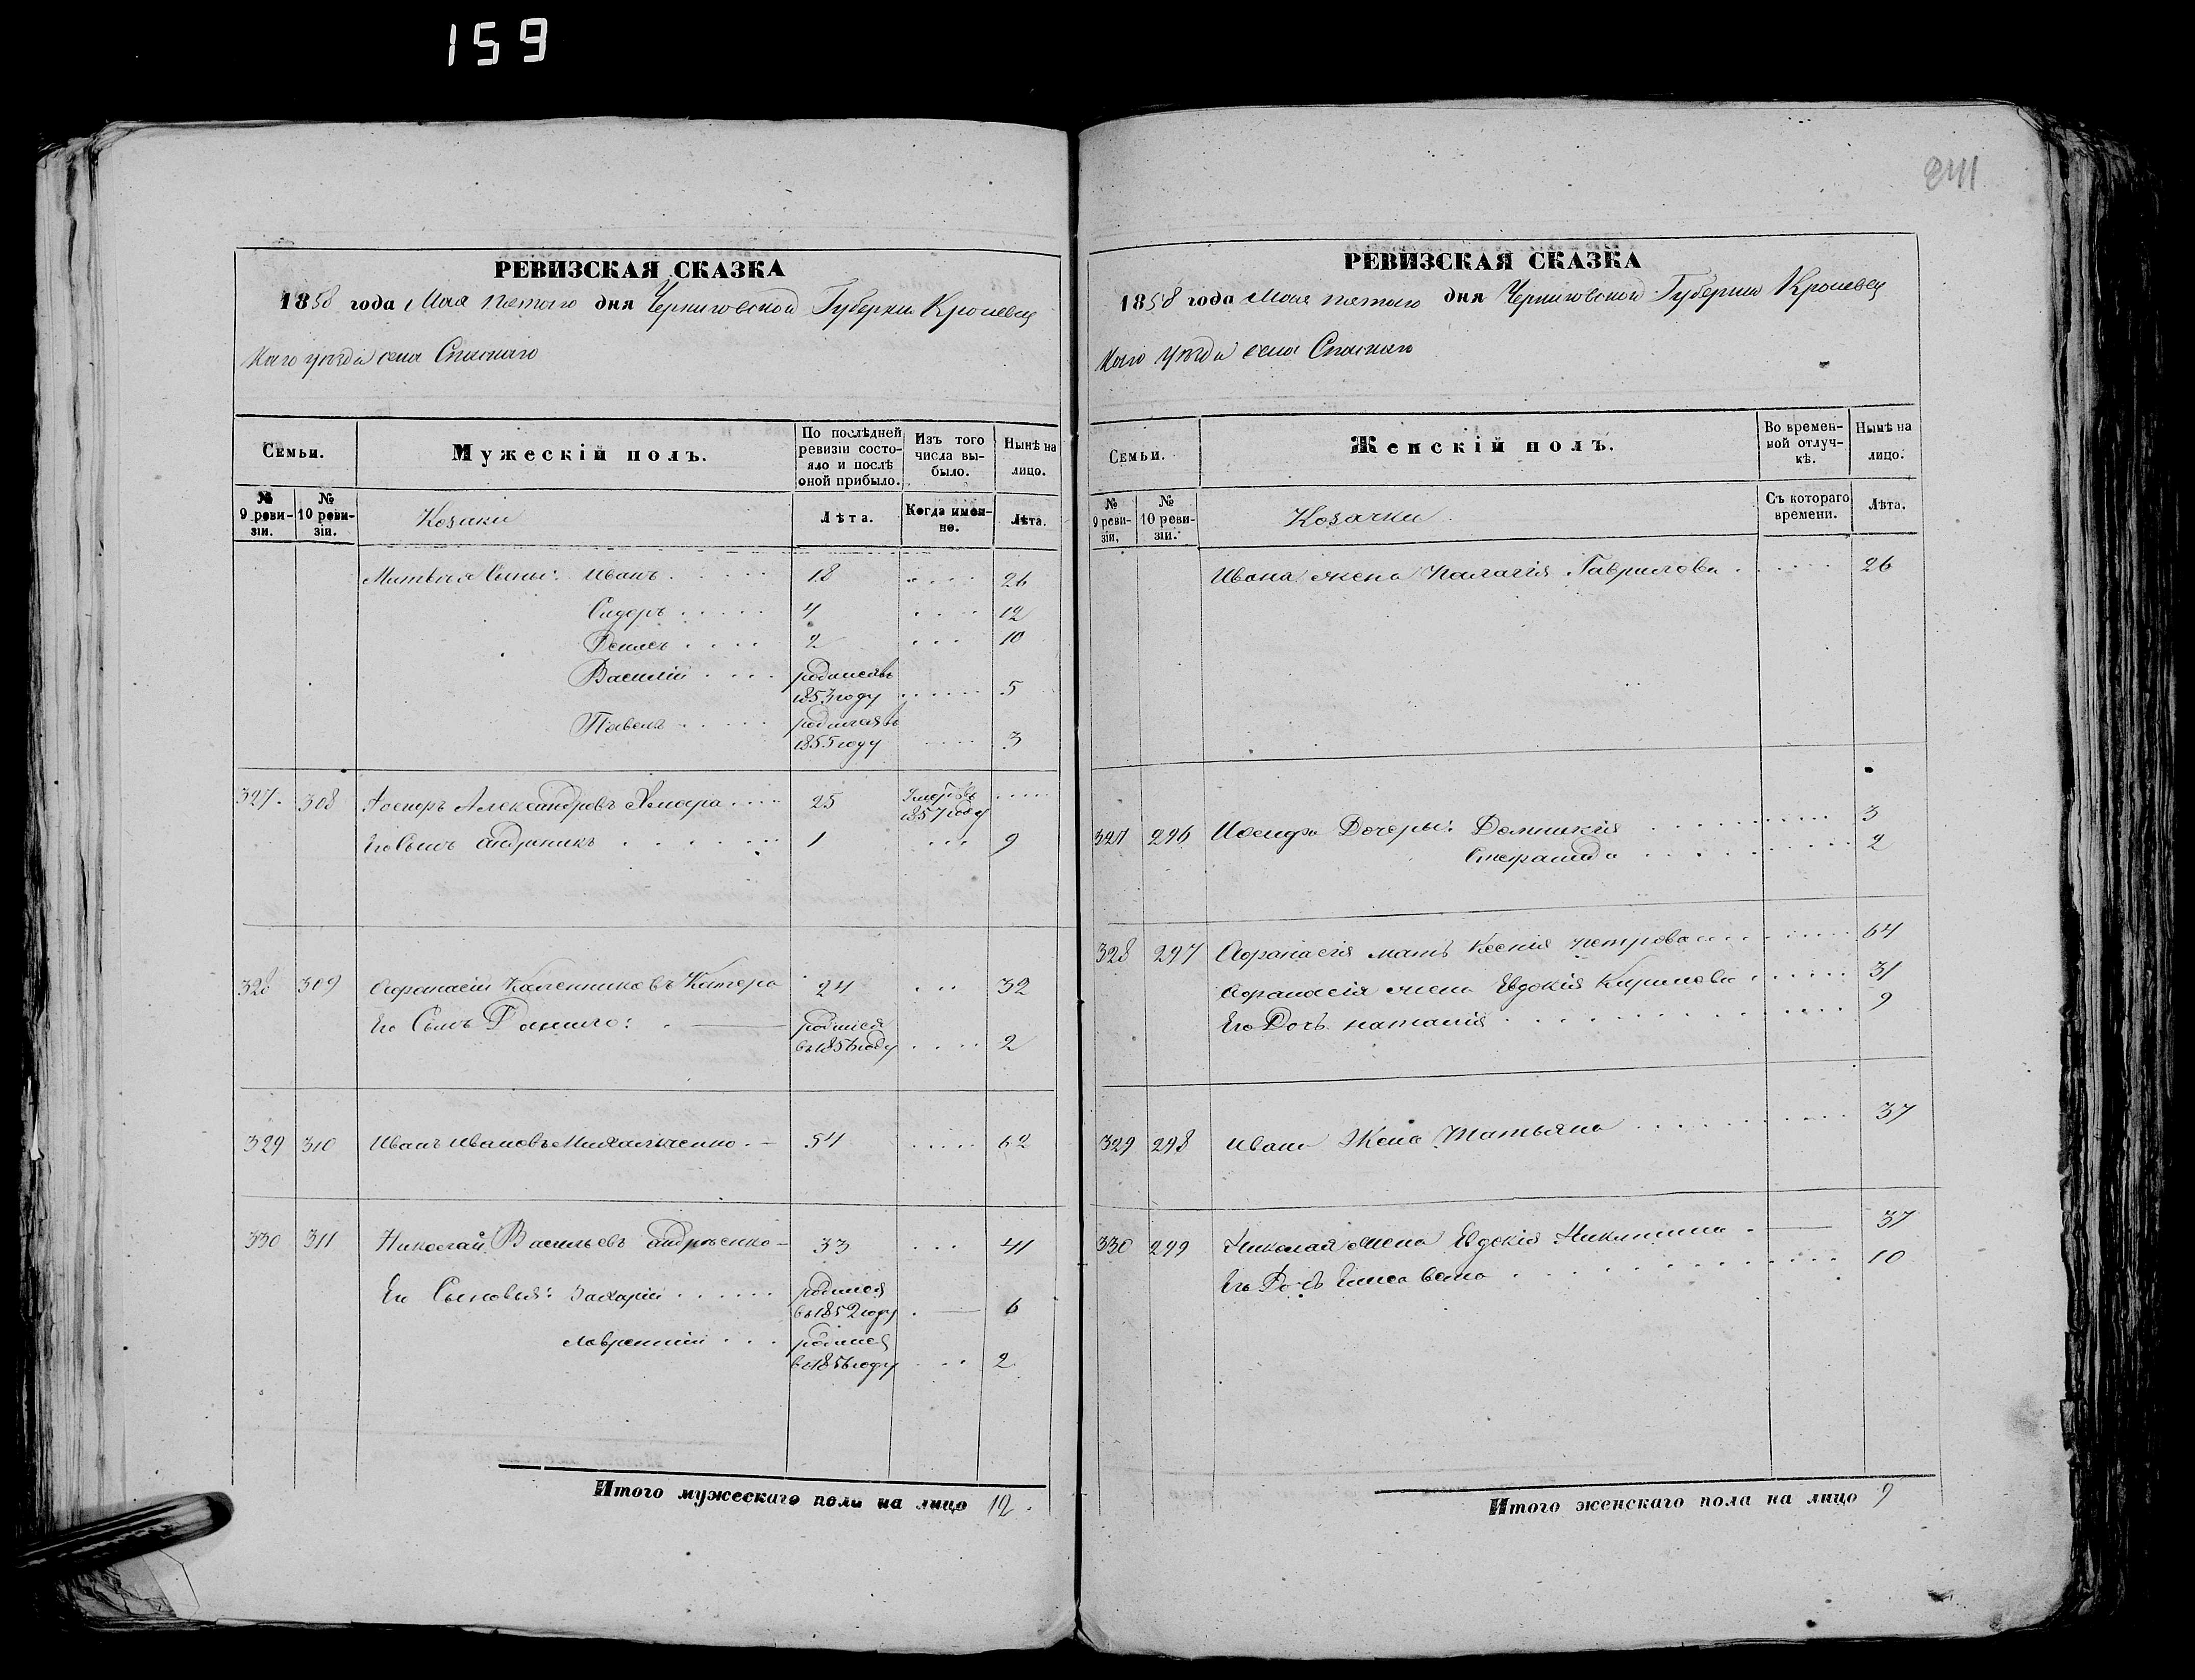 159
241
РЕВИЗСКАЯ СКАЗКА
1858 года Мая пятого дня Черниговской Губернии Кролевец
каго уезда села Спаскаго
Семьи.
Мужескій полъ.
По послѣдней ревизіи состо-
яло и послѣ оной прибыло.
Изъ того числа вы-
было.
Нынѣ на лицо.
№ 9 реви-
зіи.
№ 10 реви-
зіи.
Козаки
Лѣта.
Когда имен-
но.
Лѣта.
сыны: Иванъ 18 26
Сидоръ 4 12
2 10
Василій родился въ
1853 году 5
Павелъ родился въ
1855 году 3
327. 308 Іосифъ Александровъ 25
1857 году
Его Сынъ Андроникъ 1 9
328 309 Афанасій 24 32
Его Сынъ Данило: родился
въ 1856 году 2
329 310 Иванъ Ивановъ Михальченко 54 62
330 311 Николай Васильевъ Андрѣенко 33 41
Его Сыновья: Захарій родился
въ 1852 году 6
Лаврентій родился
въ 1856 году 2
Итого мужескаго пола на лицо 12.
РЕВИЗСКАЯ СКАЗКА
1858 года Мая пятого дня Черниговской Губернии Кролевец
каго уезда села Спаскаго
Семьи.
Женскій полъ.
Во времен-
ной отлуч-
кѣ.
Нынѣ на лицо.
№ 9 реви-
зіи.
№ 10 реви-
зіи.
Козачки
Съ котораго времени.
Лѣта.
Ивана жена Палагія Гаврилова 26
327 296 Иосифа Дочеры: Домникія 3
2
328 297 Афанасія мать Ксенія Петрова 64
Афанасія жена Евдокія Кирилова 31
Его Дочь Наталія 9
329 298 Ивана Жена Татьяна 37
330 299 Николая жена Евдокія Никитина 37
Его Дочь Елисавета 10
Итого женскаго пола на лицо 9